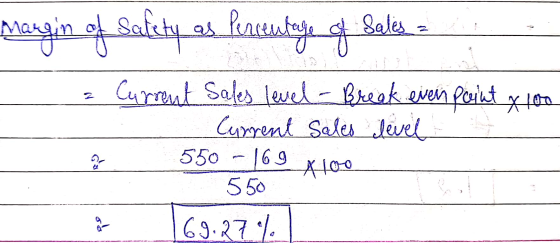 Margin of Safety as Percentage of Sales =
= Current Sales level - Break even point x 100
Current Sales level
= 550 - 169 x 100
550
= 69.27 %